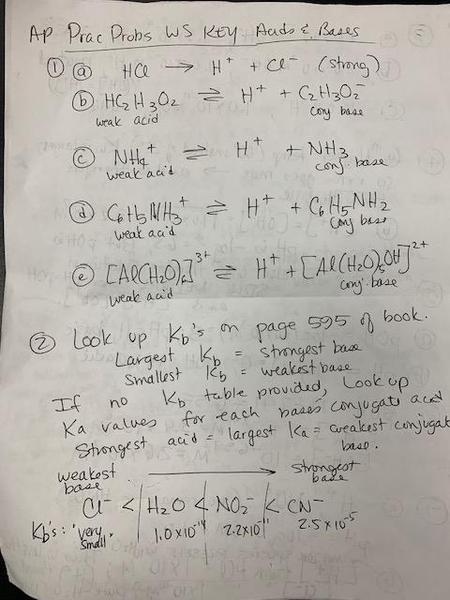 AP Prac Probs WS KEY Acids & Bases
① ⓐ HCl → H⁺ + Cl⁻ (strong)
ⓑ HC₂H₃O₂ ⇌ H⁺ + C₂H₃O₂⁻
weak acid conj base
ⓒ NH₄⁺ ⇌ H⁺ + NH₃
weak acid conj. base
ⓓ C₆H₅NH₃⁺ ⇌ H⁺ + C₆H₅NH₂
weak acid conj base
ⓔ [Al(H₂O)₆]³⁺ ⇌ H⁺ + [Al(H₂O)₅OH]²⁺
weak acid conj. base
② Look up Kb's on page 595 of book.
Largest Kb = strongest base
Smallest Kb = weakest base
If no Kb table provided, Look up
Ka values for each bases' conjugate acid
Strongest acid = largest Ka = weakest conjugate
base.
weakest base → strongest base
Cl⁻ < H₂O < NO₂⁻ < CN⁻
Kb's: "very small" 1.0×10⁻¹⁴ 2.2×10⁻¹¹ 2.5×10⁻⁵